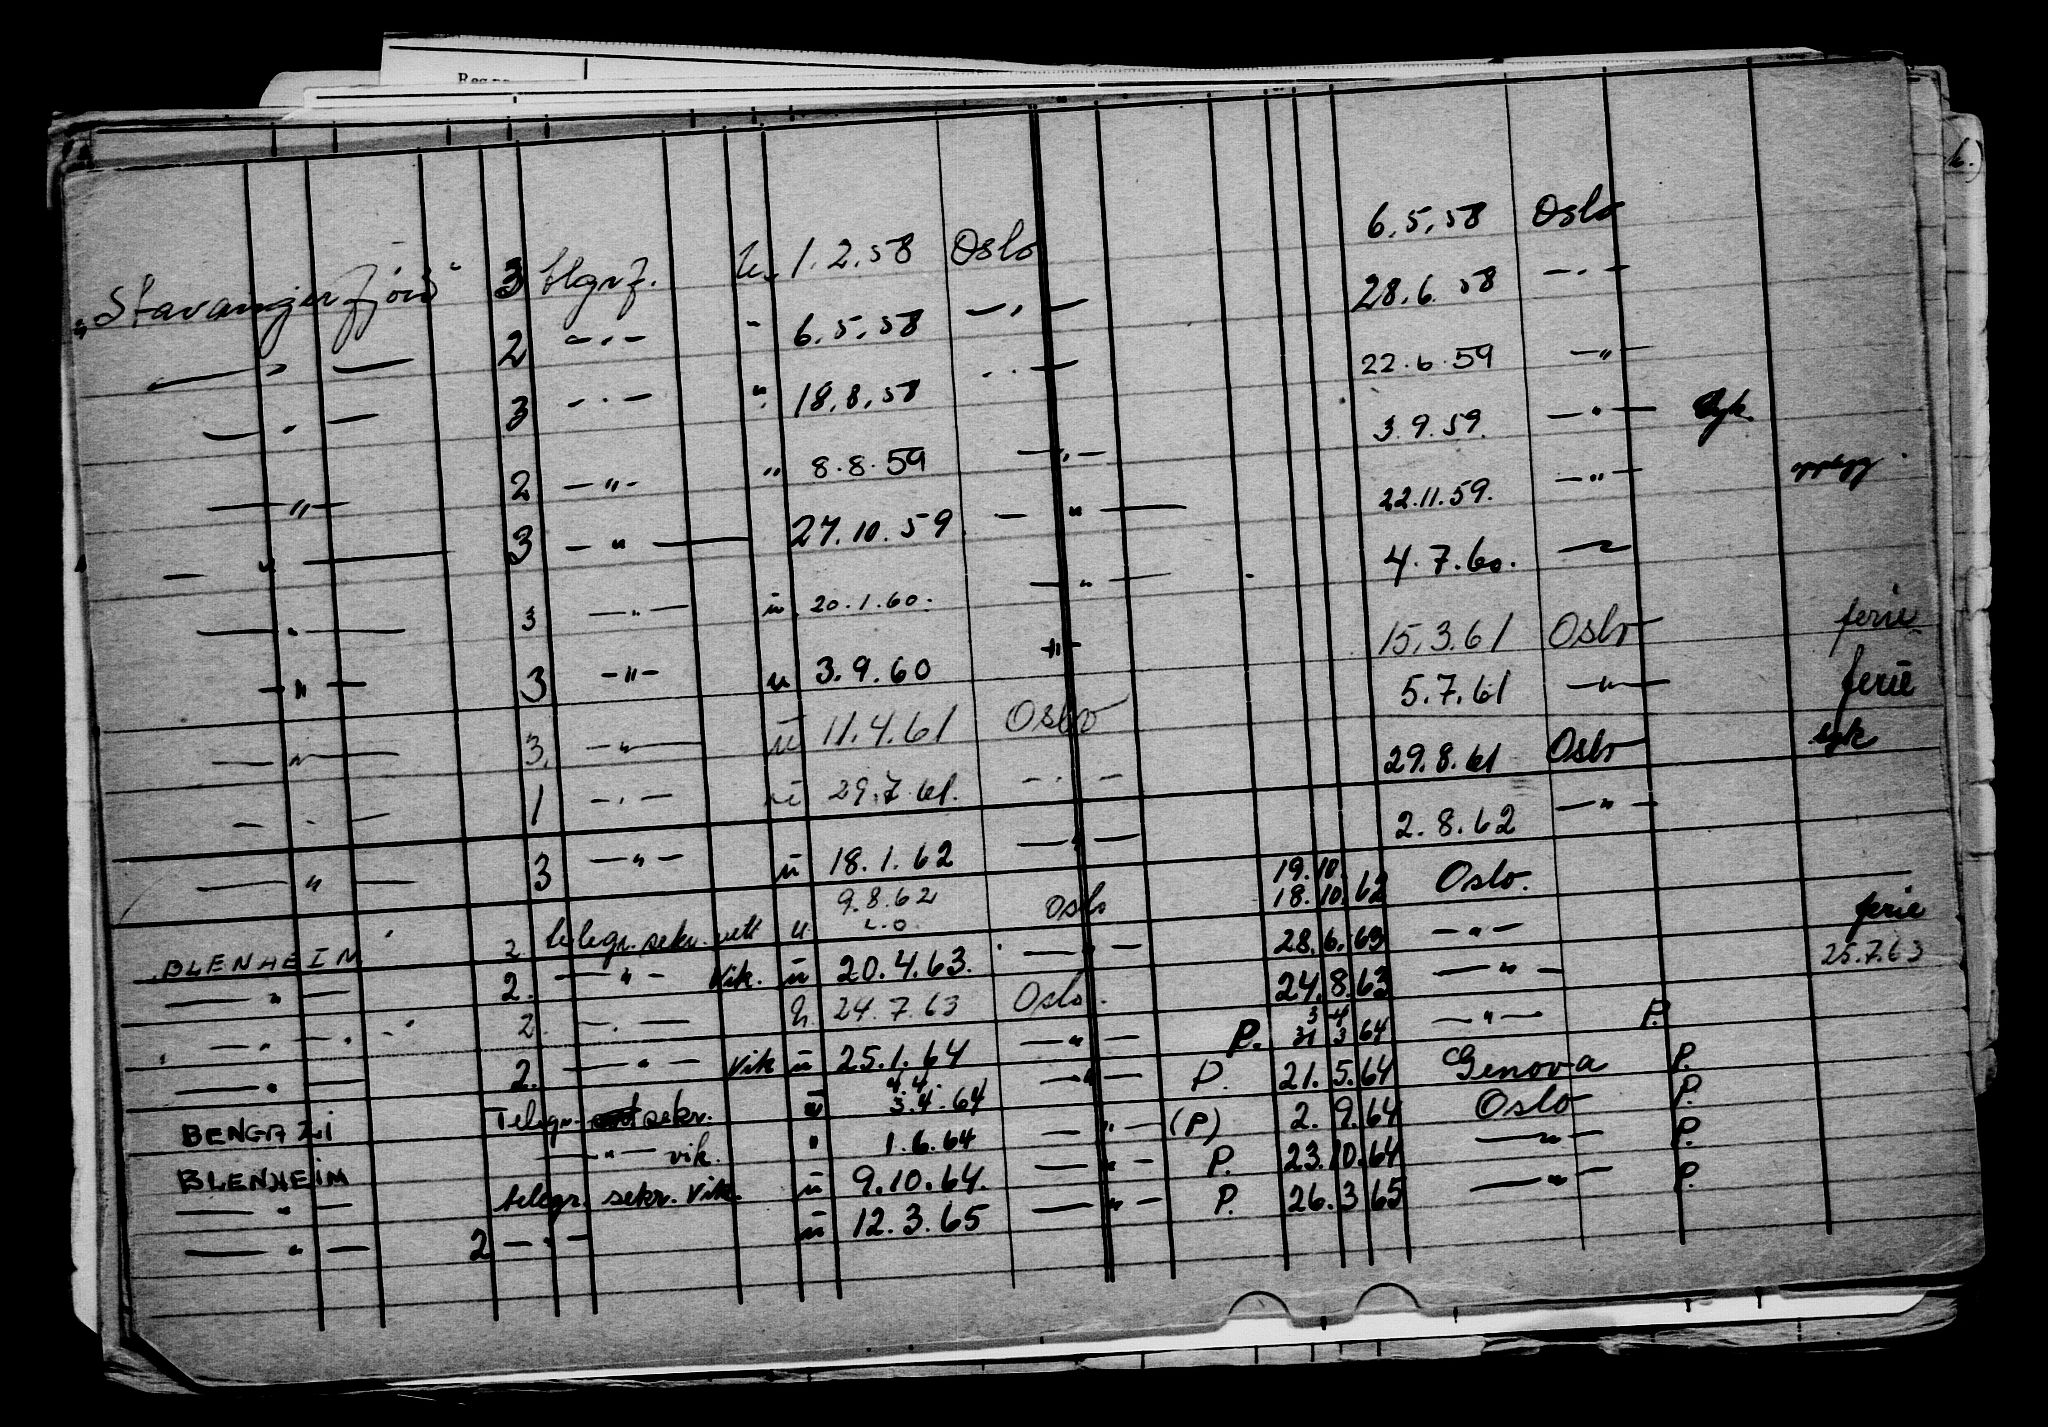 Reg.nr.
6.)
„Stavangerfjord“ 3 tlgrf. u. 1.2.58 Oslo 6.5.58 Oslo
— " — 2 — " — " 6.5.58 — " — 28.6.58 — " —
— " — 3 — " — " 18.8.58 — " — 22.6.59 — " —
— " — 2 — " — " 8.8.59 — " — 3.9.59. — " — syk.
— " — 3 — " — 27.10.59 — " — 22.11.59. — " —
— " — 3 — " — u 20.1.60. — " — 4.7.60. — " —
— " — 3 — " — u 3.9.60 — " — 15.3.61 Oslo ferie
— " — 3. — " — u 11.4.61 Oslo 5.7.61 — " — ferie
— " — 1 — " — u 29.7.61. — " — 29.8.61 Oslo syk
— " — 3 — " — u 18.1.62 — " — 2.8.62 — " —
BLENHEIM 2. telegr. sekr. u 9.8.62 Oslo 19.10. 18.10.62 Oslo.
— " — 2. — " — Vik. u 20.4.63. — " — 28.6.63 — " — ferie
— " — 2. — " — u. 24.7.63 Oslo. 24.8.63 — " — 25.7.63
— " — 2. — " — Vik u 25.1.64 — " — P. 3 4 31 3 64 — " — P.
BENGAZI Telegr. sekr. u 4.4. 3.4.64 — " — P. 21.5.64 Genova P.
BLENHEIM — " — vik. " 1.6.64 — " — (P) 2.9.64 Oslo P.
— " — telegr. sekr. Vik. u 9.10.64. — " — P. 23.10.64 — " — P.
— " — 2 — " — u 12.3.65 — " — P. 26.3.65 — " — P.